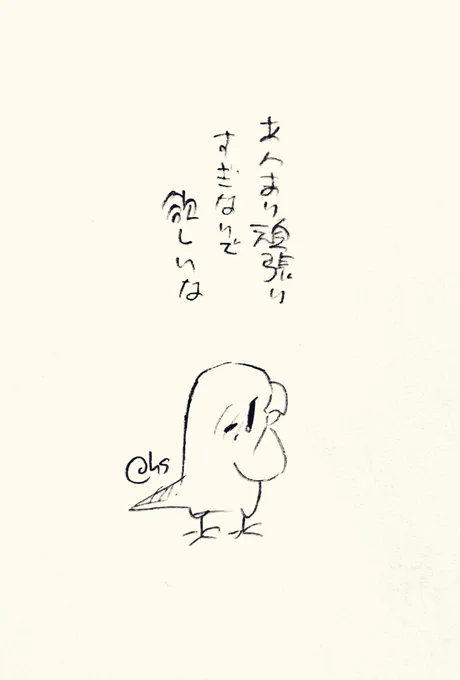 あんまり頑張り
すぎないで
欲しいな
@hs